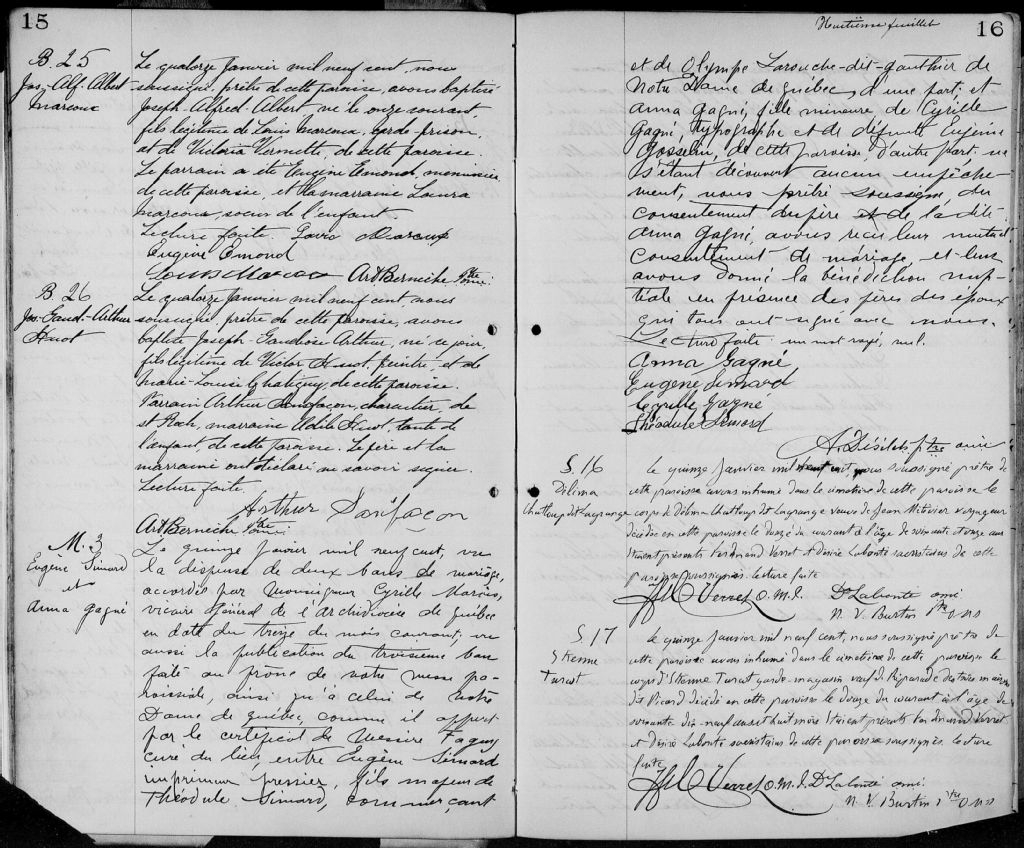 15
B. 25
Jos.-Alf.-Albert
Marcoux
Le quatorze Janvier mil neuf cent, nous
soussigné, prêtre de cette paroisse, avons baptisé
Joseph-Alfred-Albert né le onze courant,
fils légitime de Louis Marcoux, garde-prison,
et de Victoria Vermette, de cette paroisse.
Le parrain a été Eugène Emond, menuisier
de cette paroisse, et la marraine Laura
Marcoux, soeur de l'enfant
Lecture faite. Marcoux
Eugene Emond
Louis Marcoux Art Berneche Ptre
B. 26
Jos.-Gaud.-Arthur
Huot
Le quatorze Janvier mil neuf cent nous
soussigné, prêtre de cette paroisse, avons
baptisé Joseph-Gaudiose-Arthur, né ce jour,
fils légitime de Victor Huot, peintre, et de
Marie-Louise Chatigny, de cette paroisse.
Parrain Arthur Bonsfaçon, charcutier, de
St Roch, marraine Adèle Huot, tante de
l'enfant, de cette paroisse. Le père et la
marraine ont déclaré ne savoir signer.
Lecture faite.
Arthur Bonfacon
Art Berneche Ptre
M. 3
Eugène Simard
et
Anna Gagné
Le quinze Janvier mil neuf cent, vu
la dispense de deux bans de mariage,
accordée par Monseigneur Cyrille Marois,
vicaire général de l'archidiocèse de Québec
en date du treize du mois courant; vu
aussi la publication du troisième ban
faite au prône de notre messe pa-
roissiale, ainsi qu'à celui de Notre
Dame de Québec, comme il appert
par le certificat de Messire Faguy
curé du lieu, entre Eugène Simard
imprimeur pressier, fils majeur de
Théodule Simard, commerçant
Huitième feuillet
16
et de Olympe Larouche-dit-Gauthier de
Notre Dame de Québec, d'une part; et
Anna Gagné, fille mineure de Cyrille
Gagné, typographe et de défunte Eugénie
Gosselin, de cette paroisse, d'autre part, ne
s'étant découvert aucun empêche-
ment, nous prêtre soussigné, du
consentement du père de la dite
Anna Gagné, avons reçu leur mutuel
consentement de mariage, et leur
avons donné la bénédiction nup-
tiale en présence des pères des époux
qui tous ont signé avec nous.
Lecture faite un mot rayé, nul.
Anna Gagné
Eugène Simard
Cyrille Gagné
Théodule Simard
A. Désilets ptre omi
S. 16
Délima
Chatloup dit Lagrange
le quinze Janvier mil neuf cent, nous soussigné prêtre de
cette paroisse avons inhumé dans le cimetière de cette paroisse le
corps de Délima Chatloup dit Lagrange veuve de Jean Métivier voyageur
décédée en cette paroisse le douze du courant à l'âge de soixante et onze ans
Etaient présents Ferdinand Verret et Désiré Labonté sacristains de cette
paroisse soussignés lecture faite
Verret O.M.I. D Labonté omi.
N. V. Burtin Ptre O M I
S. 17
Etienne
Turcot
le quinze Janvier mil neuf cent, nous soussigné prêtre de
cette paroisse avons inhumé dans le cimetière de cette paroisse le
corps d'Etienne Turcot garde-magasin veuf de
dit Picard décédé en cette paroisse le douze du courant à l'âge de
soixante dix-neuf ans et huit mois Etaient présents Ferdinand Verret
et Désiré Labonté sacristains de cette paroisse soussignés lecture
faite
Verret O.M.I. D Labonté omi.
N. V. Burtin Ptre O M I